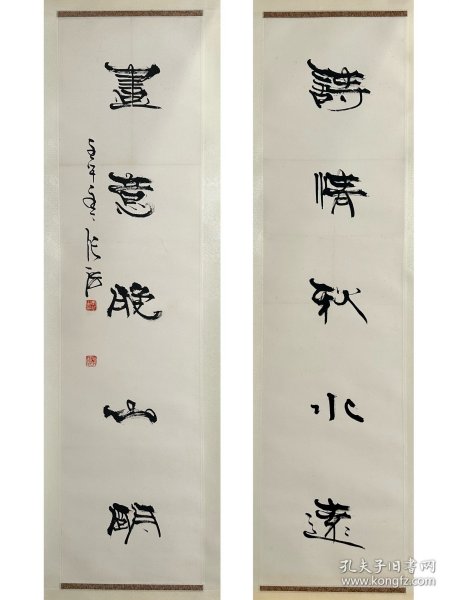 詩情秋水遠
畫意晚山明
孔夫子旧书网
www.kongfz.com